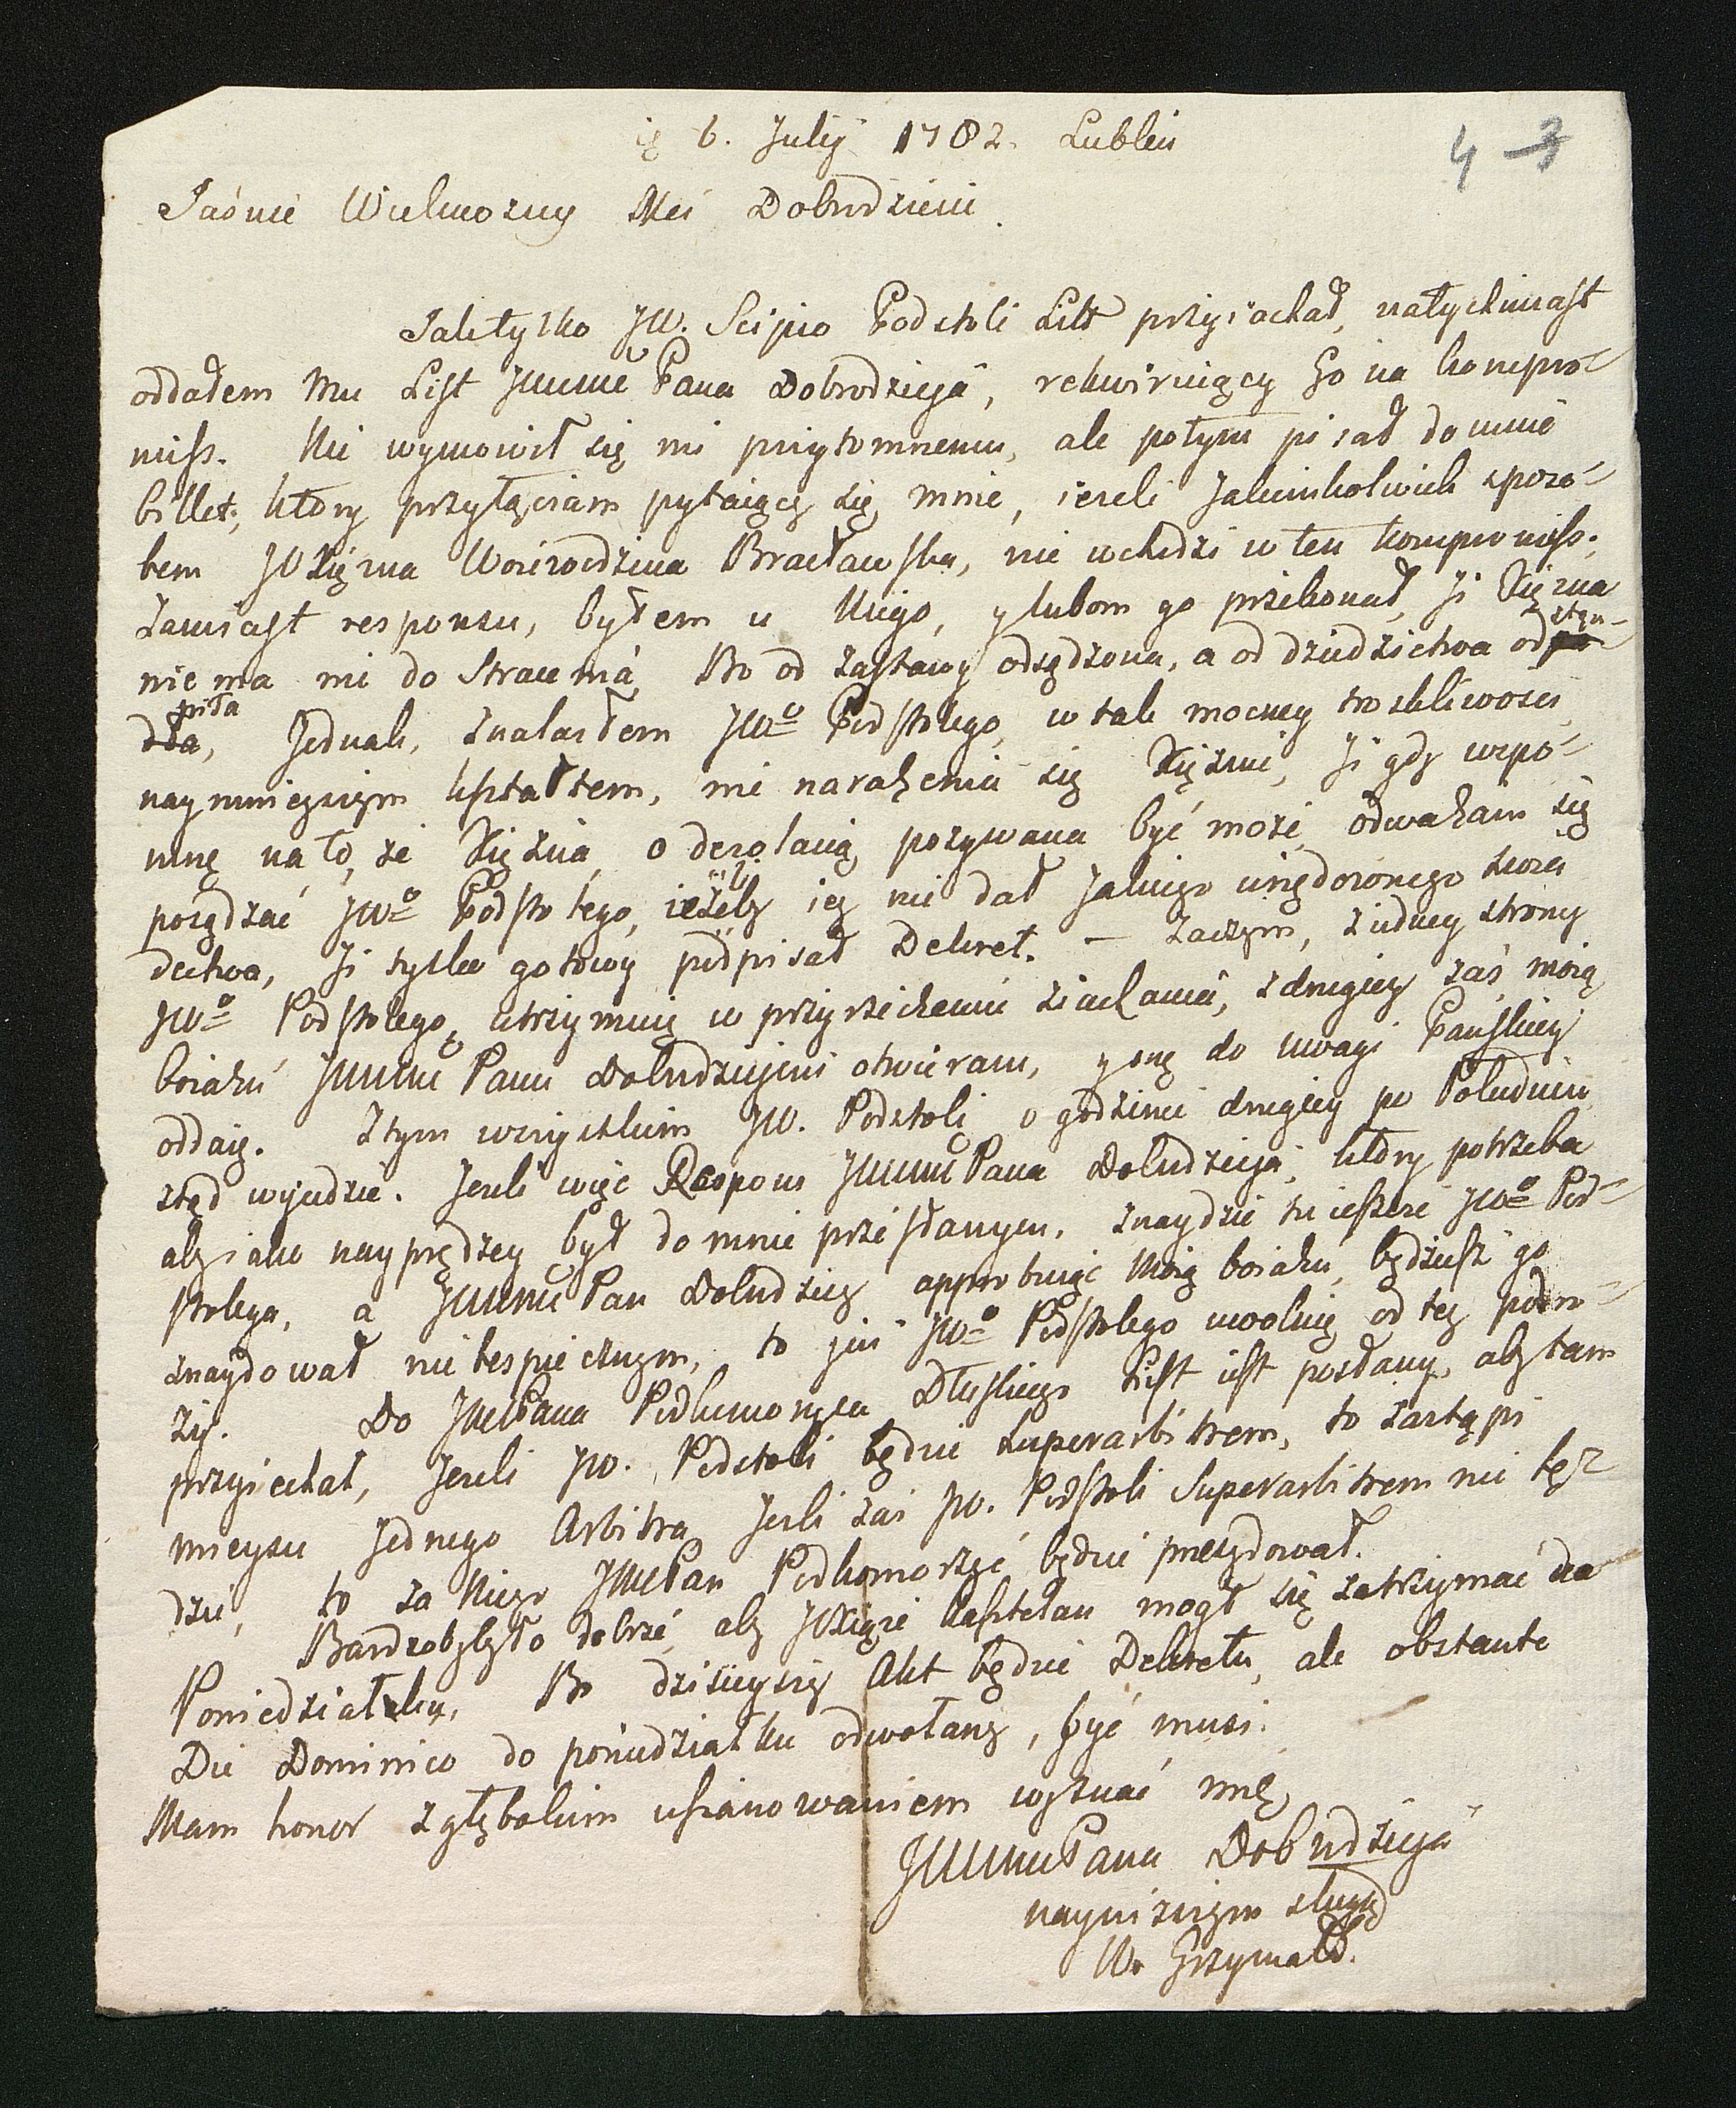 6. July 1782. Lublin
4 3
Jaśnie Wielmozny Mci Dobrodzieiu.
Jaktylko JW. Scipio Podstoli Litt przyiachał, natychmiast
oddałem Mu List JWWMć Pana Dobrodzieja, rekwiruiący Go na kompro-
miss. Nie wymowił się mi przytomnemu, ale potym pisał do mnie
billet, ktory przyłączam pytaiący się mnie, iezeli Jakimkolwiek sposo-
bem JO Xięzna Woiewodzina Bracławska, nie wchodzi w ten kompromiss.
Zamiast responsu, byłem u Niego, y lubom go przekonał, Ji Xięzna
nie ma nic do Stracenia, Bo od zastawy odsądzona, a od dziedzictwa odstą-
piła, Jednak, znalazłem JWo Podstolego, w tak mocney troskliwosci
naymnieyszym kształtem, nie narażenia się Xiężnie, Ji gdy wspo-
mnę na to, ze Xiężna o dezolacią pozywana być może, odważam się
posądzać JWo Podstolego, iżeliby iey nie dał Jakiego urzędowego
dectwa, Ji tylko gotowy podpisał Dekret. — Zaczym, z iedney strony
JWo Podstolego, utrzymuię w przyrzeczeniu ziachania, z drugiey zaś, moią
boiaźń JWWMć Panu Dobrodziejowi otwieram, y onę do uwagi Pańskiey
oddaię. Ztym wszystkim JW. Podstoli o godzinie drugiey po Południu
ztąd wyiedzie. Jezeli więc Respons JWWMć Pana Dobrodzieja, ktory potrzeba
aby iako nayprędzey był do mnie przesłanym, znaydzie tu ieszcze JWo Pod-
stolego, a JWWMć Pan Dobrodziey approbuiąc Moię boiaźń, będziesz go
znaydował niebespiecznym, to już JWo Podstolego uwolnię od tey podro-
ży. Do JMć Pana Podkomorzyca Dłuskiego List iest posłany, aby tam
przyiechał, Jezeli JW. Podstoli będzie Superarbitrem, to zastąpi
mieysce Jednego Arbitra, Jezli zaś JW. Podstoli Superarbitrem nie bę-
dzie, to za Niego JMć Pan Podkomorzyc będzie prezydował.
Bardzoby było dobrze, aby JO Xiąże Kasztelan mogł się zatrzymać do
Poniedziałku, Bo dzisieyszy Akt będzie Dekretu, ale obstante
Die Dominico do poniedziałku odwołany, być musi.
Mam honor z głębokim uszanowaniem wyznać mnę
JWWMć Pana Dobrodzieja
naynizszym sługą
W. Grzymała.